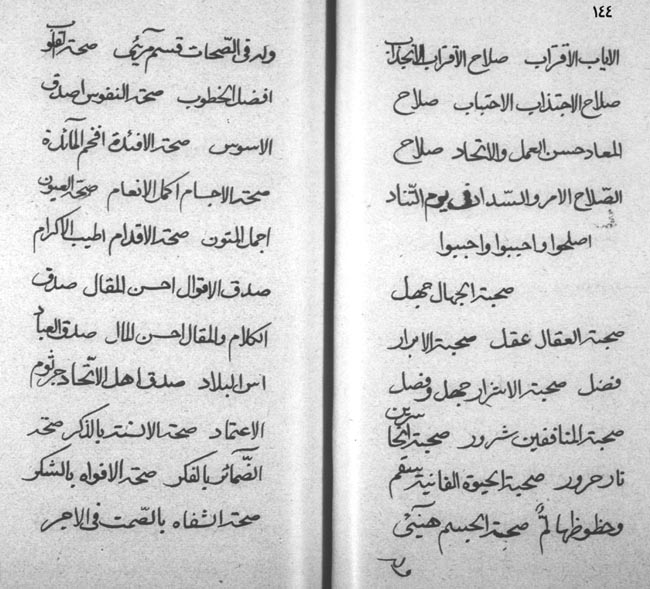 ١٤٤
الاياب الاقتراب صلاح الأقراب الانجذاب
صلاح الاجتذاب الاحتباب صلاح
المعاد حسن العمل والاتحاد صلاح
الصّلاح الامر والسّداد فی يوم التّناد
اصلحوا واحيبوا واجيبوا
صحبة الجهال جهل
صحبة العقال عقل صحبة الابرار
فضل صحبة الاشرار جهل وفصل
صحبة المنافقين شرور صحبة الخاسرين
نار حرور صحبة الحيوة الفانية سقم
وحظوظها لمّ صحبة الجسم هنيئی
وله فی الصّحات قسم مريئی صحة القلوب
افضل الخطوب صحة النفوس اصدق
الاسوس صحة الافئدة افخم المآئدة
صحة الاجسام اكمل الانعام صحة العيون
اجمل المتون صحة الاقدام اطيب الاكرام
صدق الاقوال احسن المقال صدق
الكلام والمقال احسن المال صدق العباد
اس البلاد صدق اهل الاتّحاد جرثوم
الاعتماد صحة الالسنة بالذكر صحة
الضّمائر بالفكر صحة الافواه بالشكر
صحة الشفاه بالصّمت فی الاجر